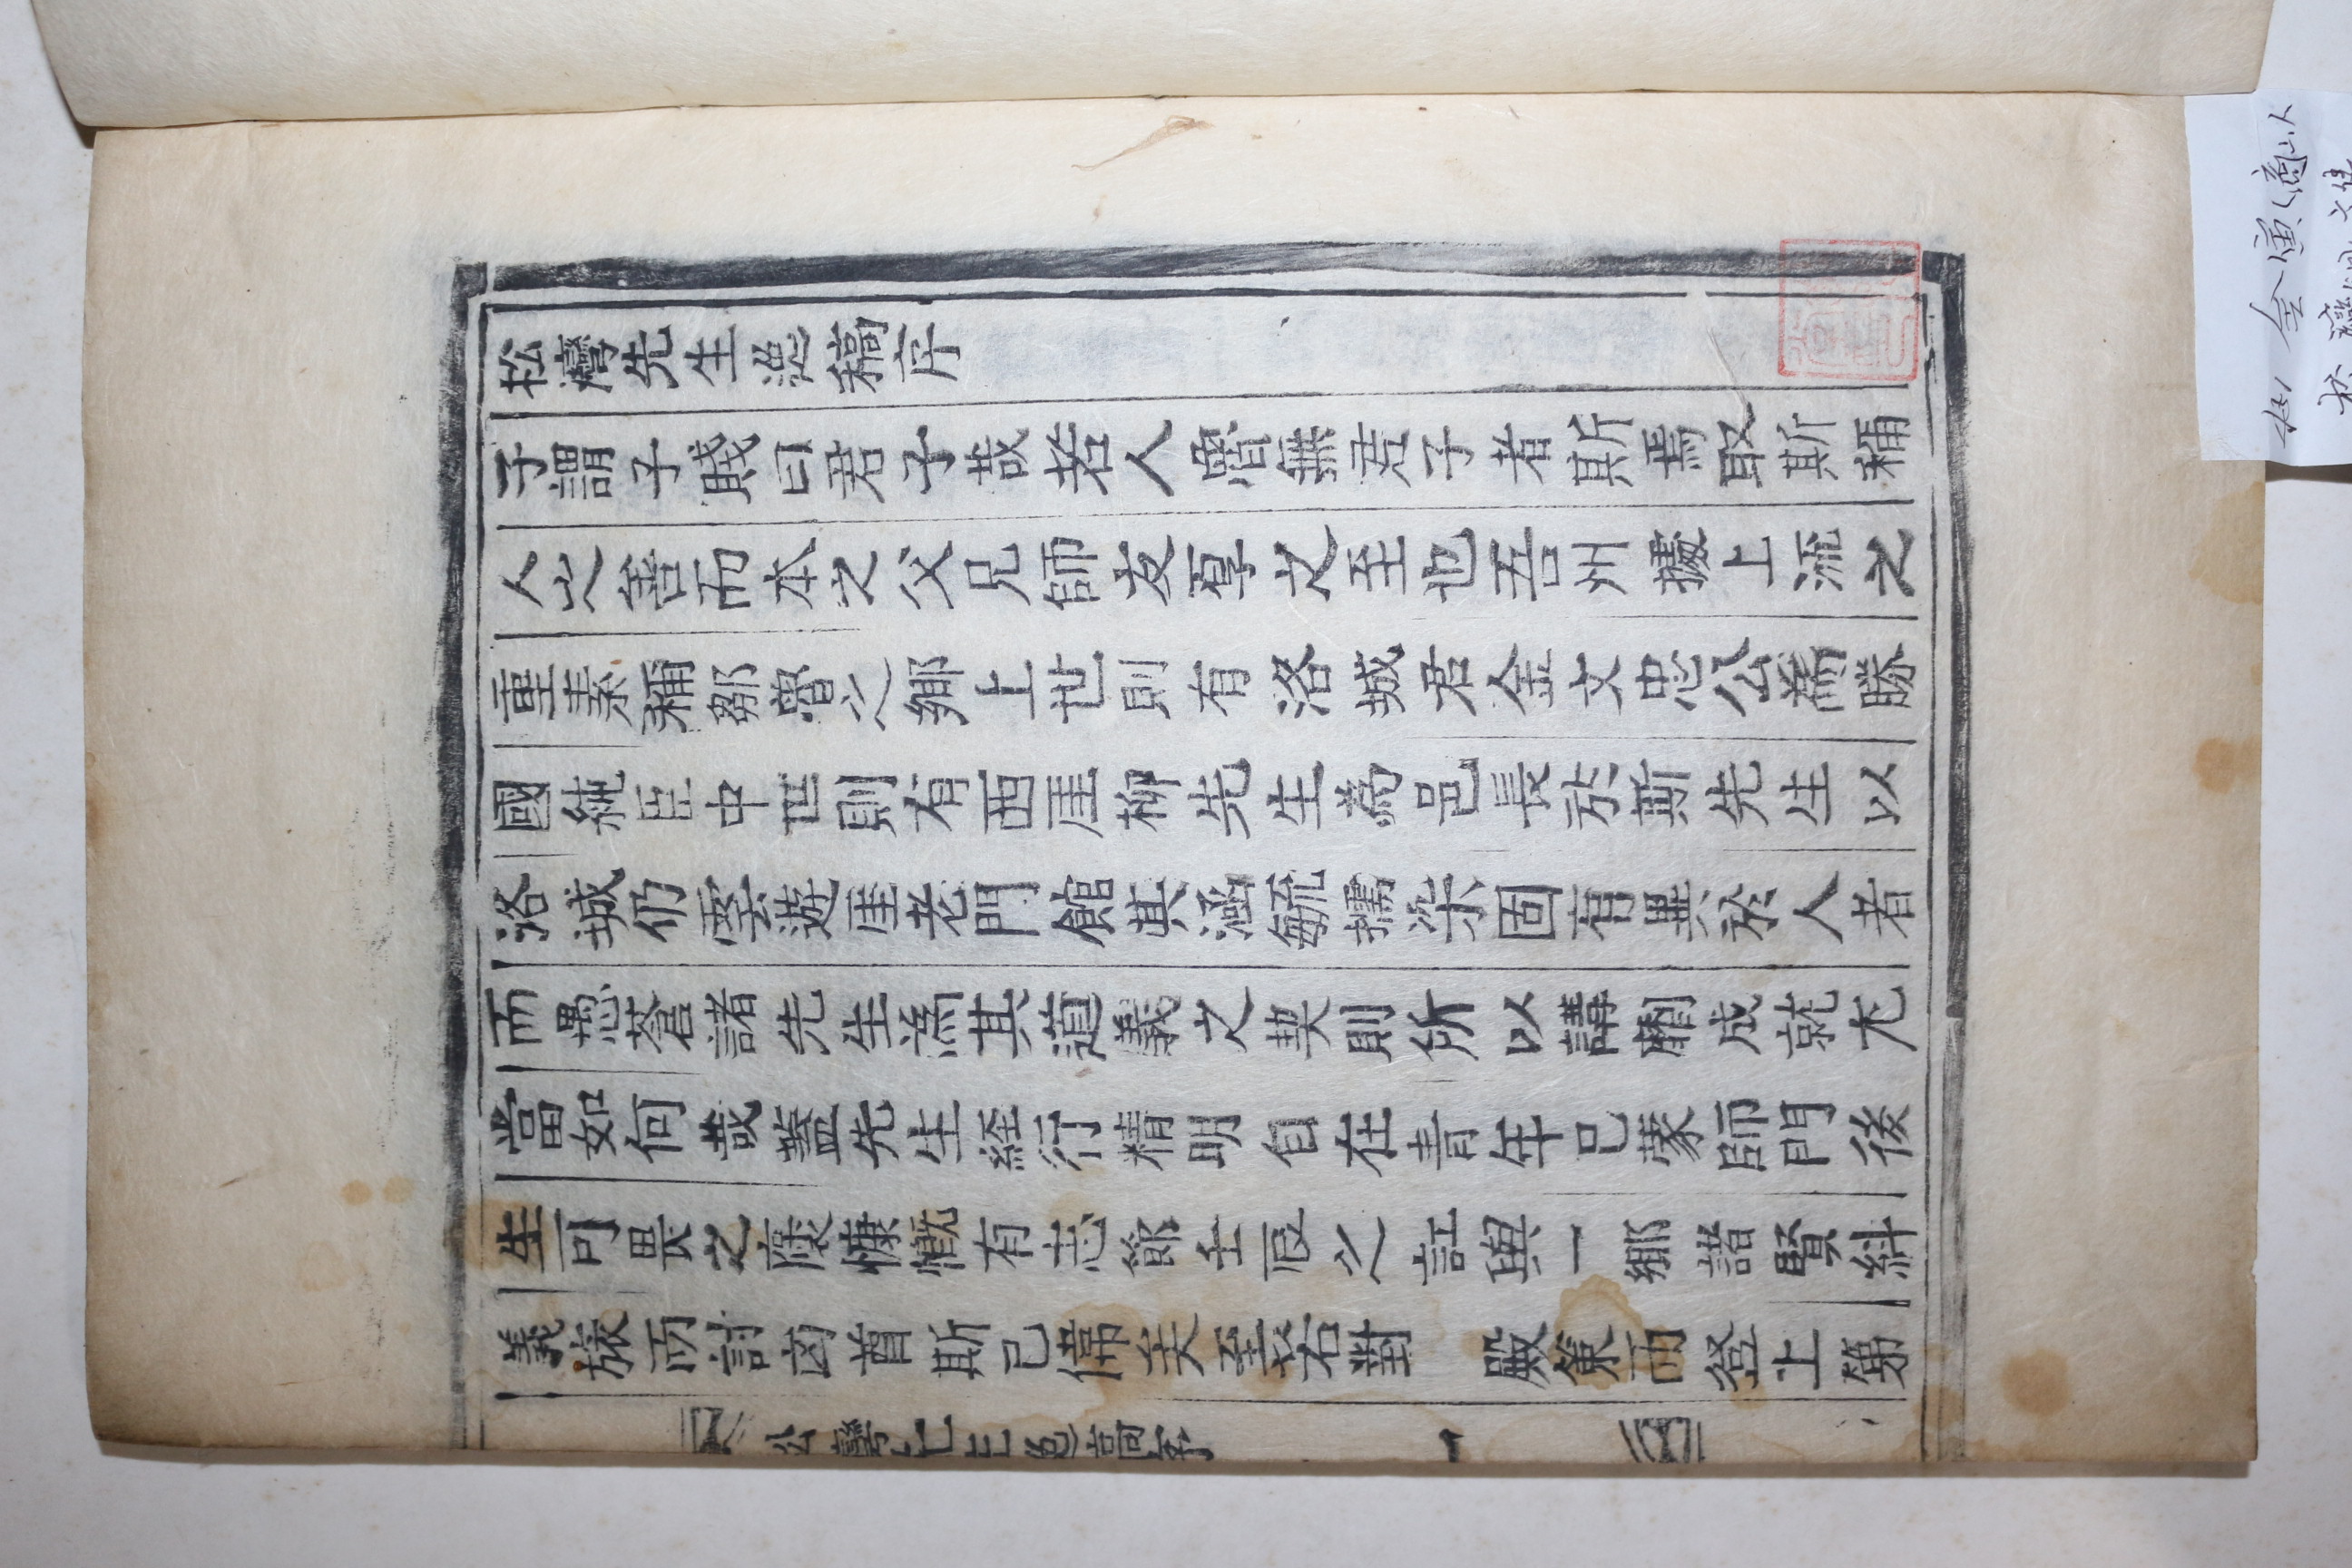 松灣先生逸稿序
子謂子賤曰君子哉若人魯無君子者斯焉取斯稱
人之善而本之父兄師友厚之至也吾州據上流之
重素稱鄒魯之鄉上世則有洛城君金文忠公蔚勝
國純臣中世則有西厓柳先生爲邑長於斯先生以
洛城仍雲遊厓老門館其涵毓擩染固有異於人者
而愚蒼諸先生爲其道義之契則所以講劘成就尤
當如何哉蓋先生經行精明自在青年已蒙師門後
生可畏之奬慷慨有志節壬辰之訌與一鄉諸賢糾
義旅而討凶酋斯已偉矣至若對 殿策而登上第
松灣先生逸稿序 一